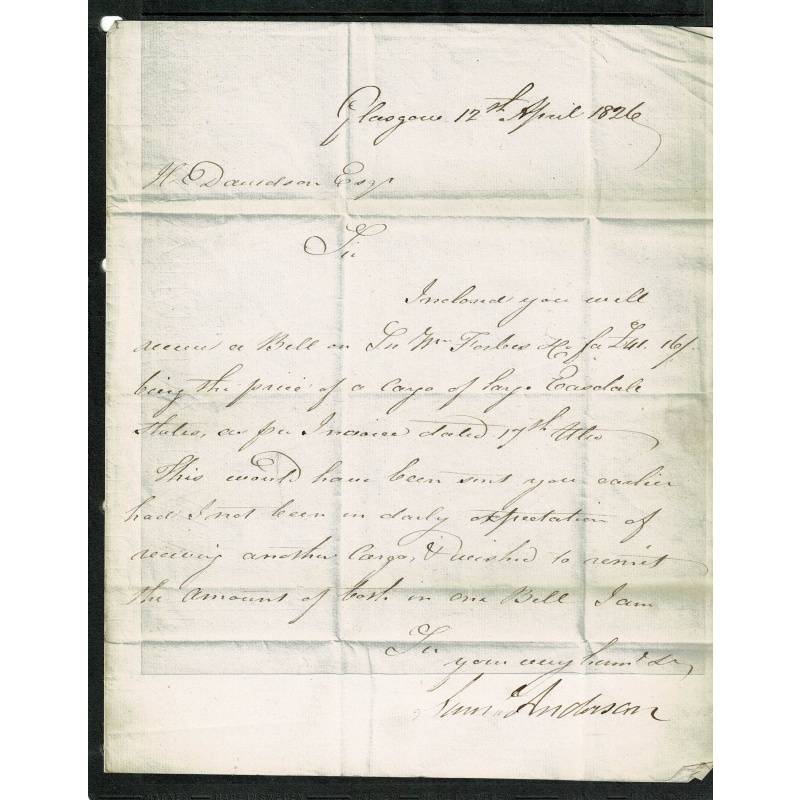 Glasgow 12th April 1826
H Davidson Esqr
Sir
Inclosed you will
receive a Bill on Sir Wm Forbes & Co for £41. 16/.
being the price of a Cargo of large Easdale
slates, as per Invoice dated 17th Ulto
This would have been sent you earlier
had I not been in daily expectation of
receiving another Cargo, & wished to remit
the amount of both in one Bill I am
Sir
your very humb St
Anderson